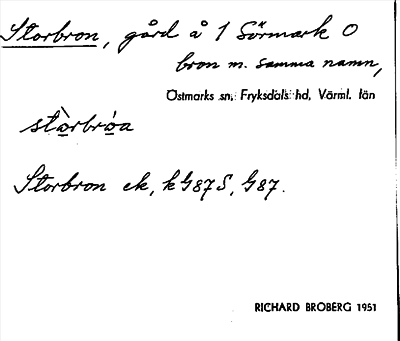 Storbron, gård å 1 Sörmark O
bron m. samma namn,
Östmarks sn, Fryksdals hd, Värml. län
stò̱rbró̱a
Storbron ek, k G87S, G87.
RICHARD BROBERG 1951